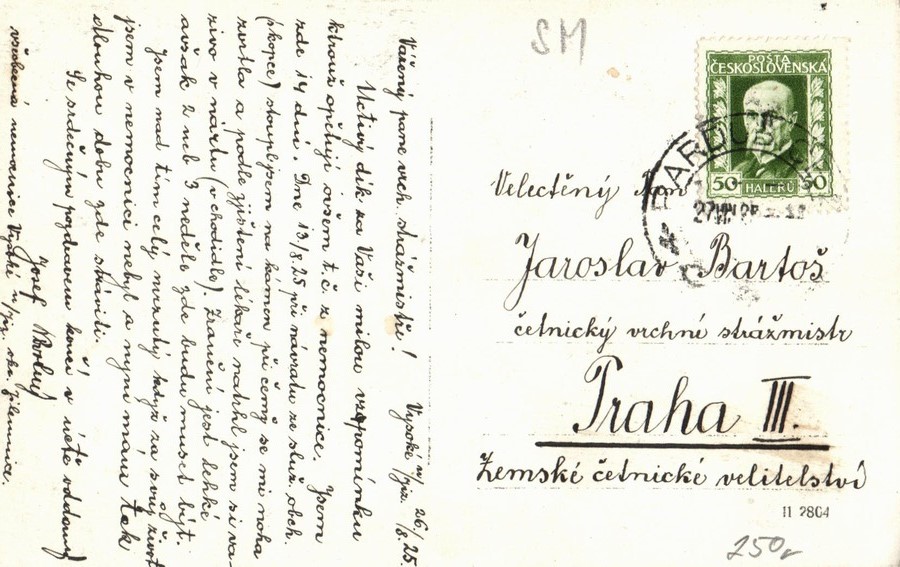 Vážený pane vrch. strážmistře! Vysoké n/Jiz. 26./8. 25.
Uctivý dík za Vaši milou vzpomínku
kterouž opětuji ovšem t.č. z nemocnice. Jsem
zde 14 dní. Dne 13/8.25 při návratu ze služ. obch.
(skopce) stoupl jsem na kámen při čemž se mi noha
zvrtla a podle zjištění lékaře natrhl jsem si va-
zivo v nártu (v chodidle). Zranění jest lehké
avšak 2 neb 3 neděle zde budu muset být.
Jsem nad tím celý mrzutý když za svůj život
jsem v nemocnici nebyl a nyní mám tak
dlouhou dobu zde strávit.
Se srdečným pozdravem končí v úctě oddaný
Josef
všeobecná nemocnice Vysoké n/Jiz. okr. Jilemnice.
SM
POŠTA
ČESKOSLOVENSKÁ
50 HALÉŘŮ 50
PARDUBICE
Velectěný pan
Jaroslav Bartoš
četnický vrchní strážmistr
Praha III.
Zemské četnické velitelství
11 2804
250,-